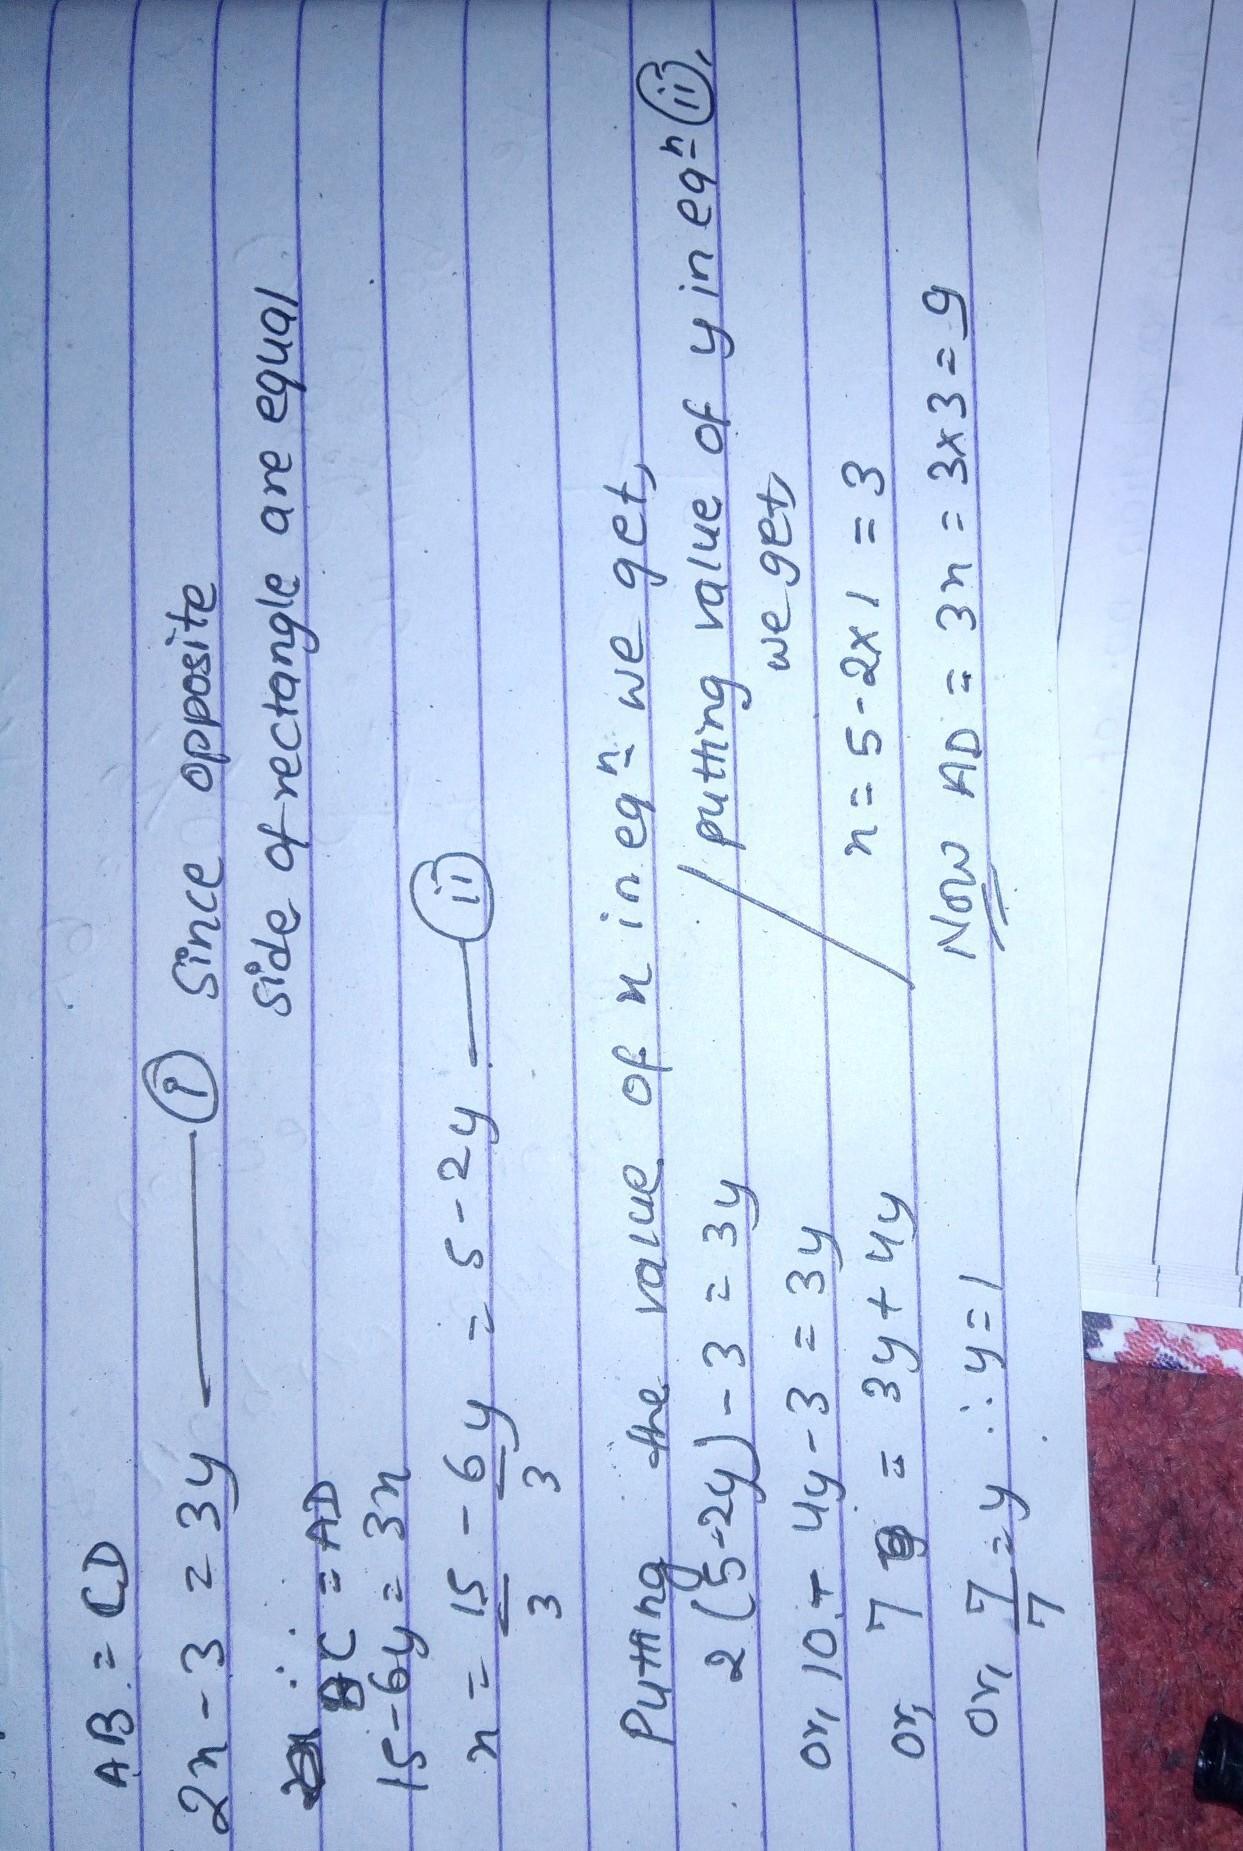 AB = CD
2x - 3 = 3y ——— (i) Since opposite
side of rectangle are equal
∴ BC = AD
15-6y = 3x
x = 15/3 - 6y/3 = 5 - 2y —— (ii)
Putting the value of x in eqn we get,
2(5-2y) - 3 = 3y
or, 10 - 4y - 3 = 3y
or, 7 = 3y + 4y
or, 7/7 = y ∴ y = 1
putting value of y in eqn (ii),
we get,
x = 5 - 2x1 = 3
Now AD = 3x = 3x3 = 9